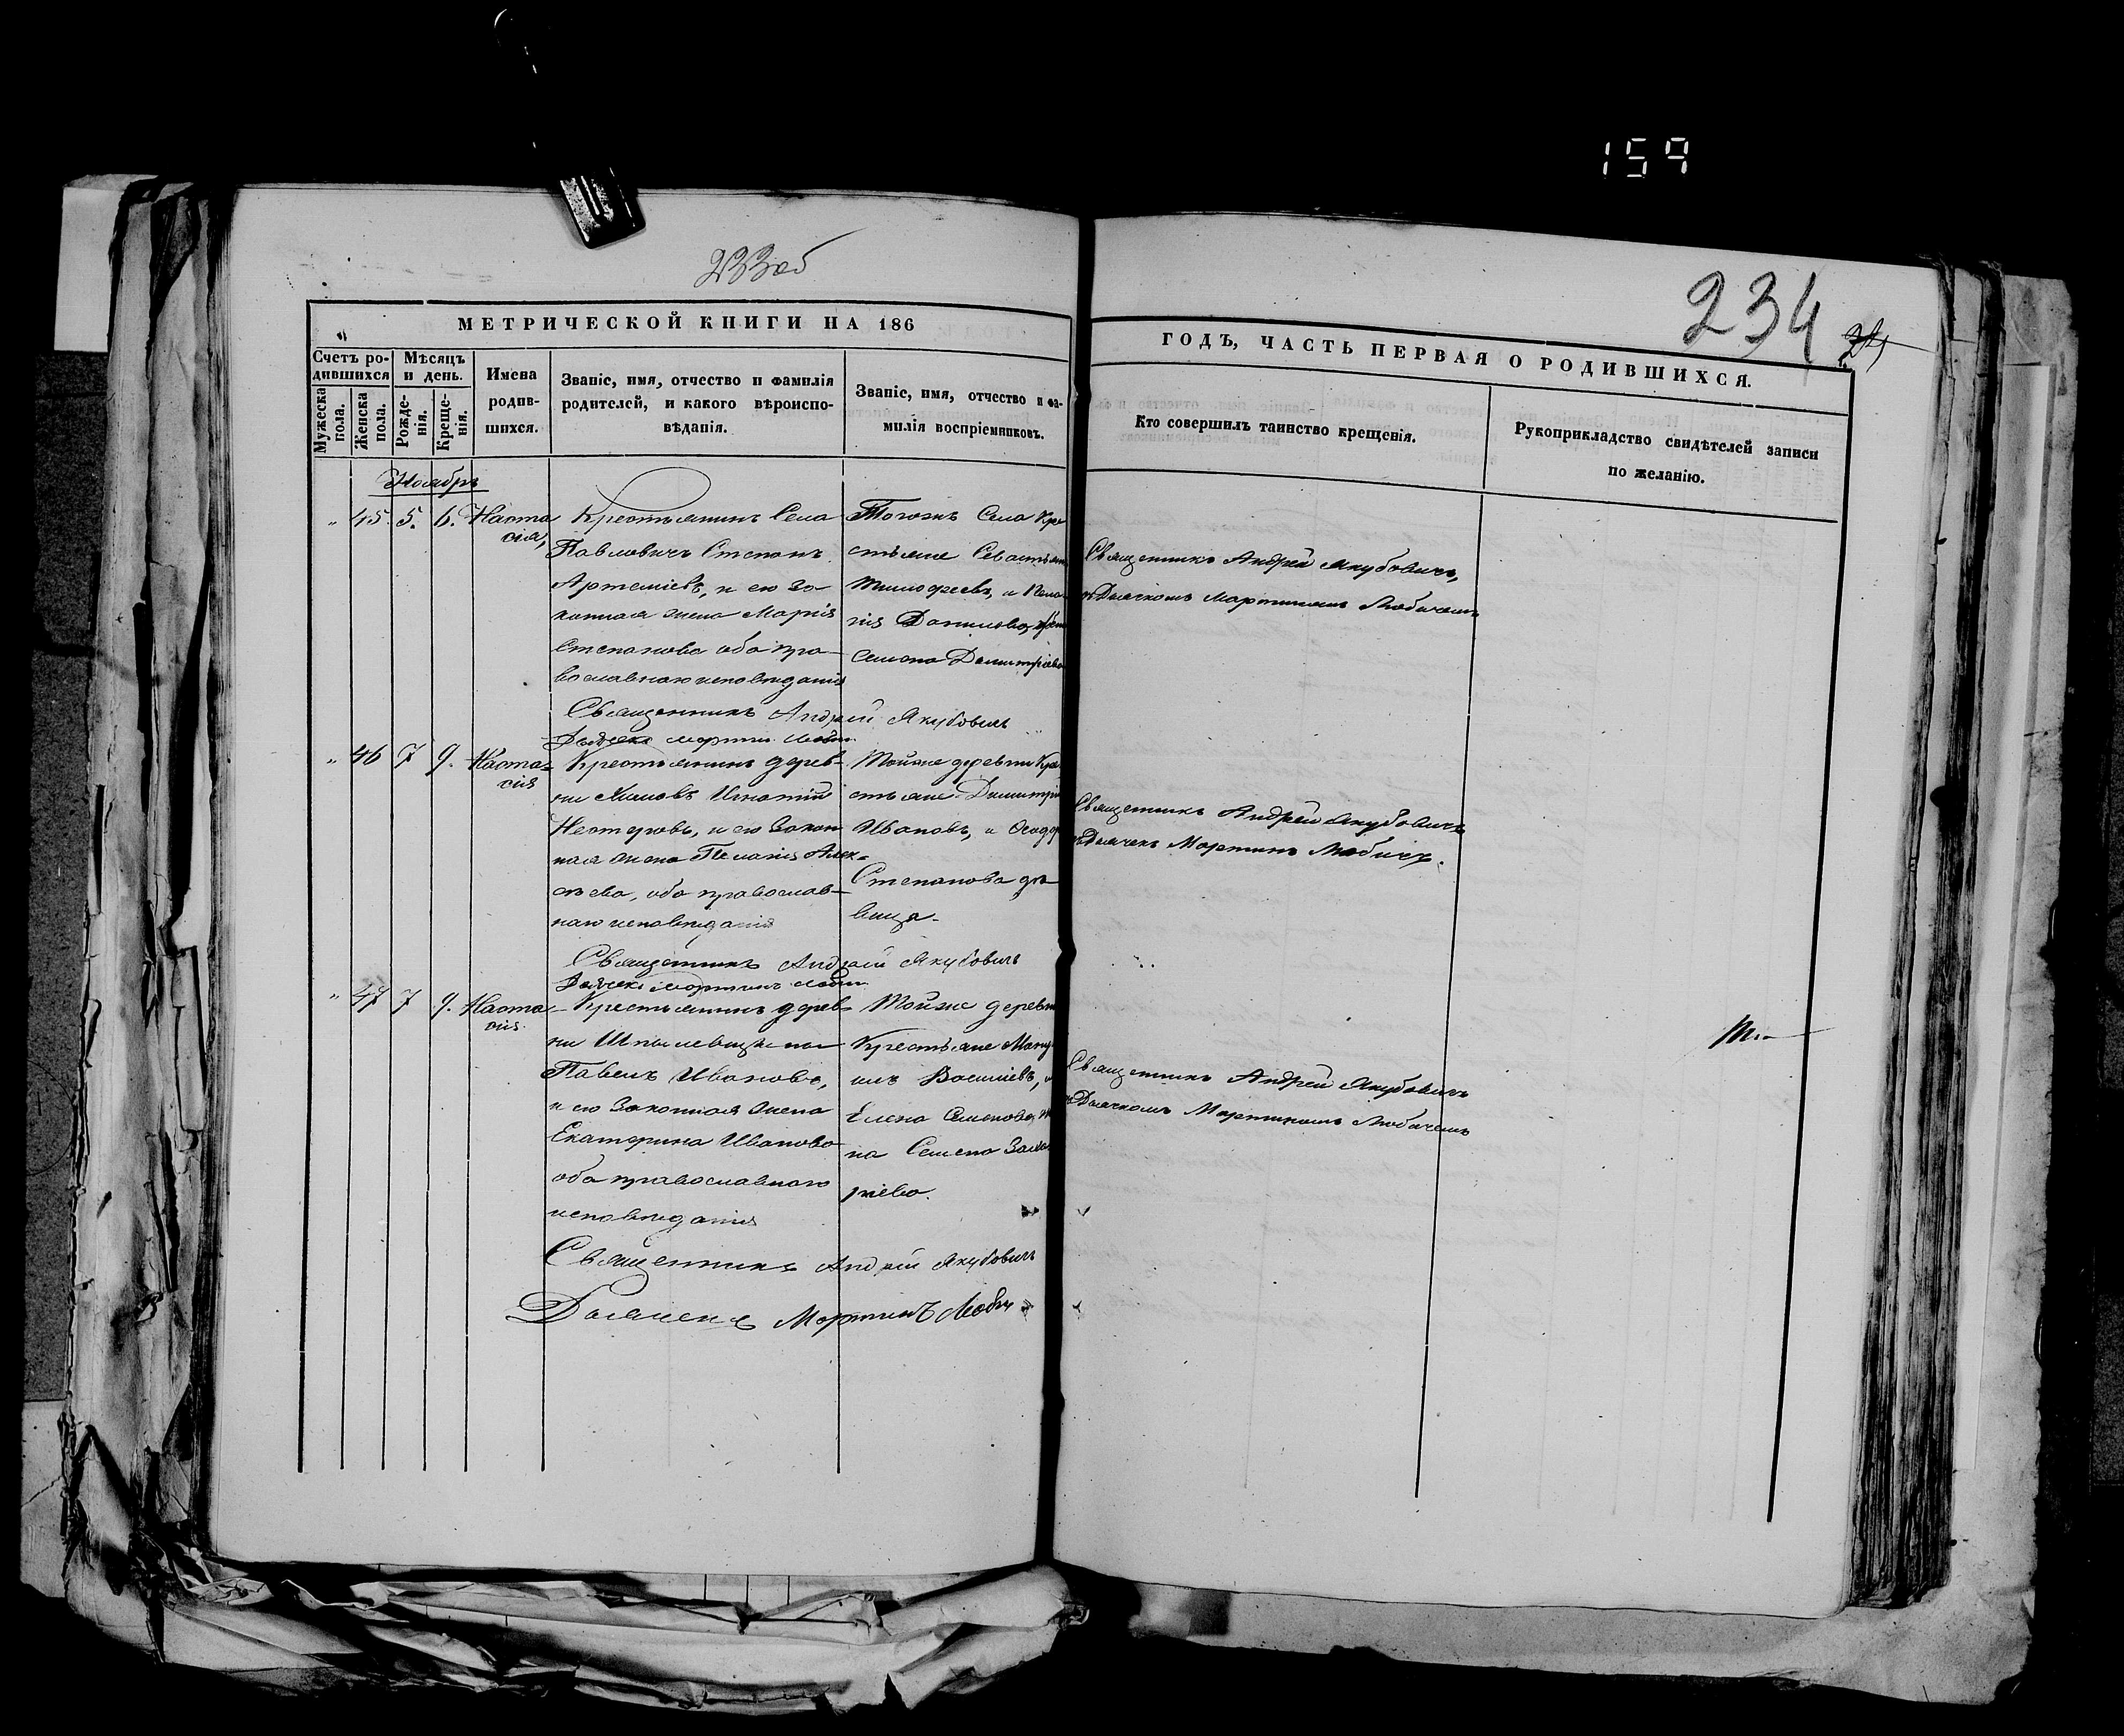 159
233об
234
МЕТРИЧЕСКОЙ КНИГИ НА 186
ГОДЪ, ЧАСТЬ ПЕРВАЯ О РОДИВШИХСЯ.
Счетъ ро-
дившихся
Мужеска
пола.
Женска
пола.
Мѣсяцъ
и день.
Рожде-
нія.
Креще-
нія.
Имена
родив-
шихся.
Званіе, имя, отчество и фамилія
родителей, и какого вѣроиспо-
вѣданія.
Званіе, имя, отчество и фа-
милія воспріемниковъ.
Кто совершилъ таинство крещенія.
Рукоприкладство свидѣтелей записи
по желанію.
Ноябрь
„ 45. 5. 6. Наста
сія,
Крестьянинъ Села
Павловичъ Степанъ
Артеміевъ, и его За-
конная жена Марія
Степанова оба пра-
вославнаго исповѣданія
Тогожъ Села Кре
стьяне Севастьян
Тимофеевъ, и Пела
гія Данилова,
Семена Димитріева
Священникъ Андрей Якубовичъ,
съ Дьячкомъ Мартиномъ Любичемъ
Священникъ Андрей Якубовичъ
Дьячекъ Мартин
„ 46 7 9. Наста-
сія
Крестьянинъ дерев-
ни Игнатій
Нестеровъ, и его Закон
ная жена Пелагія Алек-
сѣева, оба православ-
наго исповѣданія
Тойже деревни Кре
стьяне Димитрій
Ивановъ, и Феодор
Степанова дѣ
вица.
Священникъ Андрей Якубовичъ
съ Дьячекъ Мартинъ Любичъ.
Священникъ Андрей Якубовичъ
Дьячекъ Мартинъ
„ 47 7 9. Наста-
сія.
Крестьянинъ дерев-
ни
Павелъ Ивановъ,
и его Законная жена
Екатерина Иванова
оба православнаго
исповѣданія
Тойже деревни
Крестьяне Ману
илъ Василіевъ, и
Елена Семенова, же
на Семена Заха
ріева.
Священникъ Андрей Якубовичъ
съ Дьячкомъ Мартиномъ Любичемъ
Священникъ Андрей Якубовичъ
Дьячекъ Мартинъ Люби